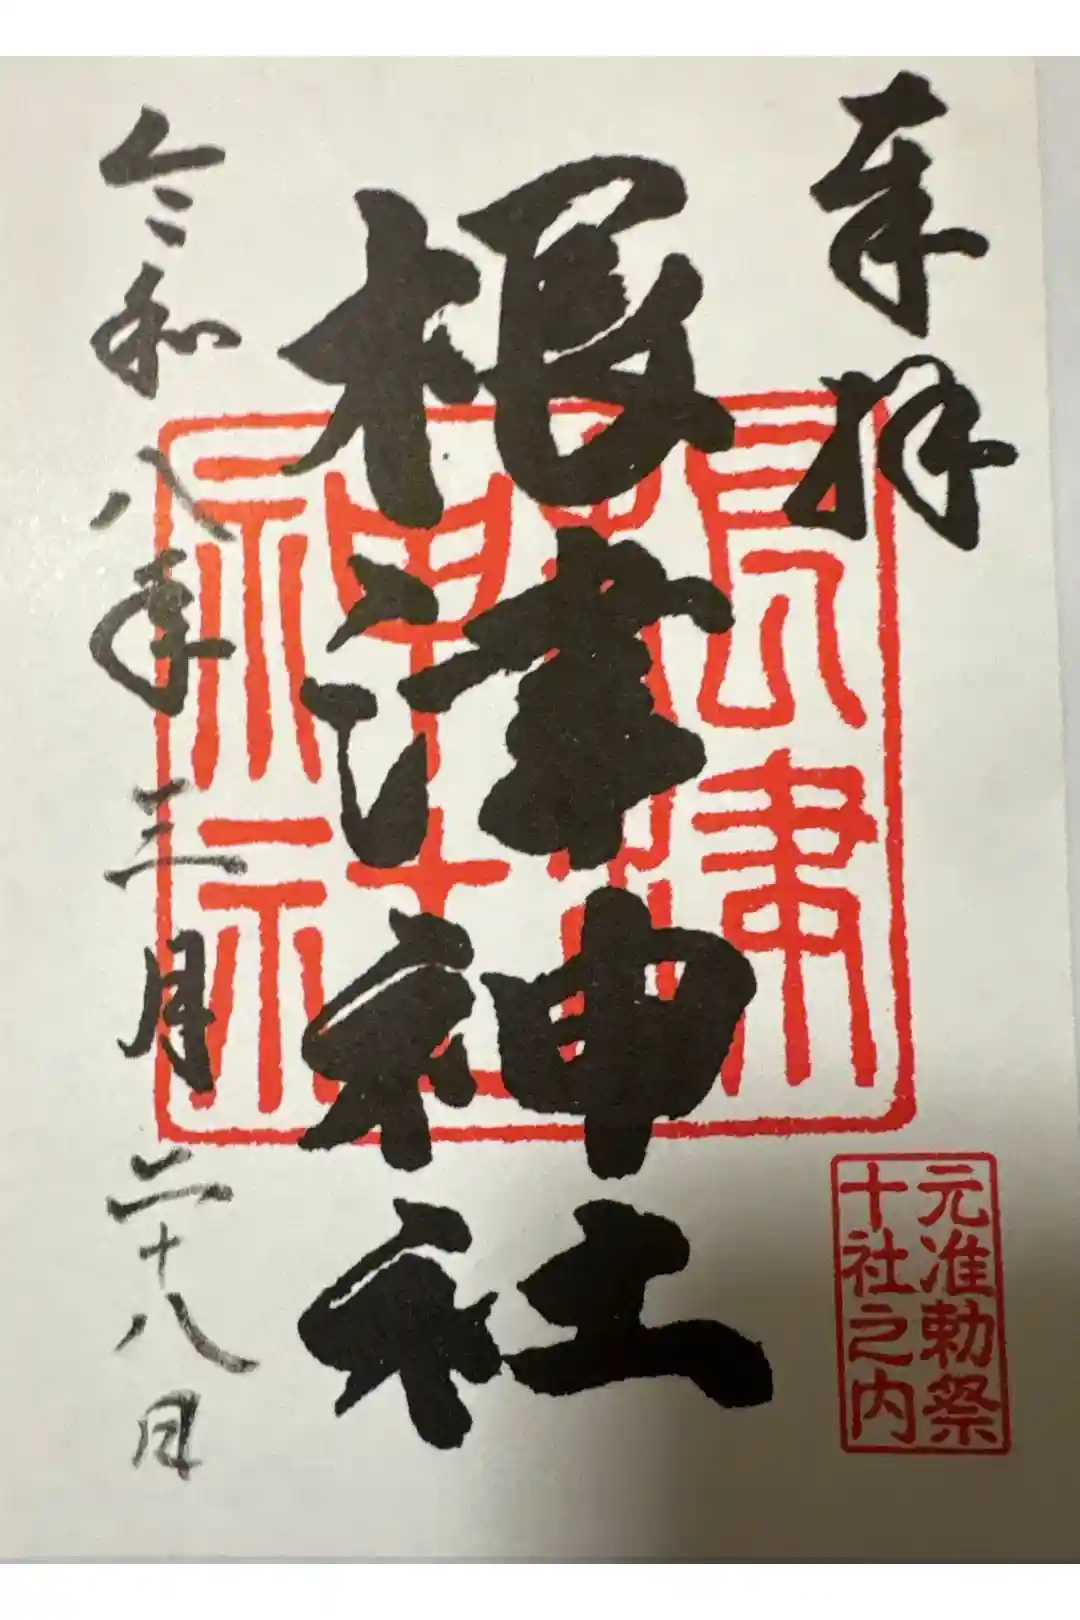 奉拝
根津神社
令和八年三月二十八日
根津
神社
元准勅祭
十社之内